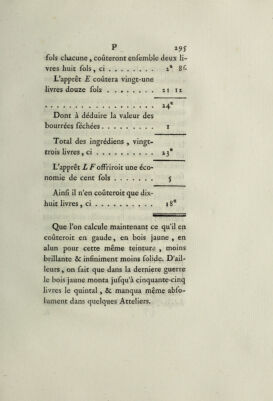 P 295
sols chacune, coûteront ensemble deux li-
vres huit sols, ci . . . . . . . . 2# 8s
L'apprêt E coûtera vingt-une
livres douze sols . . . . . . . . 21 12
. . . . . . . . . . . . . . . . . . 24#
Dont à déduire la valeur des
bourrées séchées . . . . . . . . . 1
Total des ingrédiens, vingt-
trois livres, ci . . . . . . . . . . 23#
L'apprêt L F offriroit une éco-
nomie de cent sols . . . . . . . 5
Ainsi il n'en coûteroit que dix-
huit livres, ci . . . . . . . . . . 18#
Que l'on calcule maintenant ce qu'il en
coûteroit en gaude, en bois jaune, en
alun pour cette même teinture, moins
brillante & infiniment moins solide. D'ail-
leurs, on sait que dans la derniere guerre
le bois jaune monta jusqu'à cinquante-cinq
livres le quintal, & manqua même abso-
lument dans quelques Atteliers.